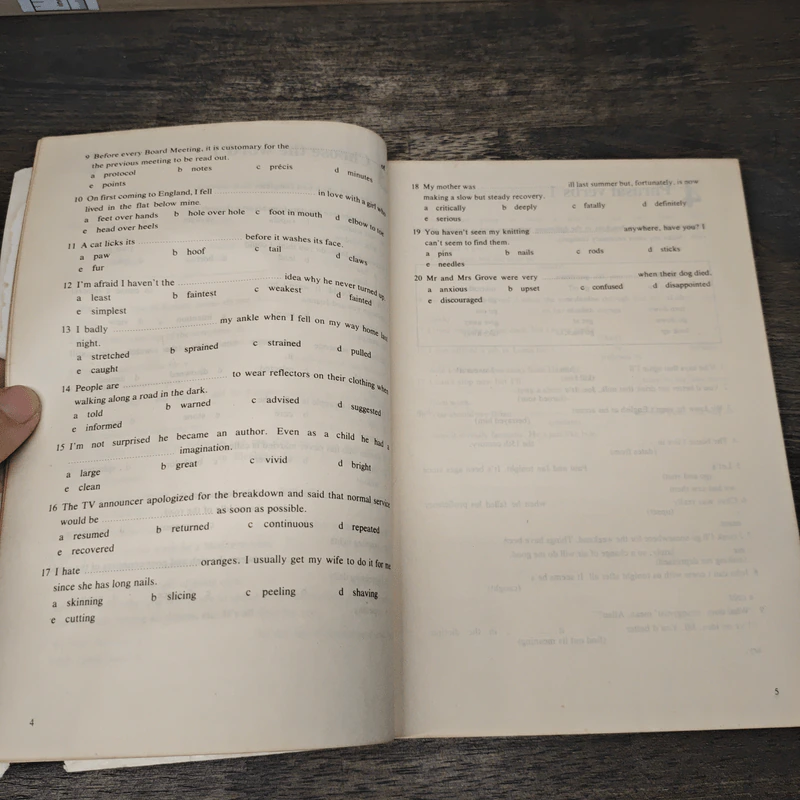 9 Before every Board Meeting, it is customary for the .......... of
the previous meeting to be read out.
a protocol b notes c précis d minutes
e points
10 On first coming to England, I fell .......... in love with a girl who
lived in the flat below mine.
a feet over hands b hole over hole c foot in mouth d elbow to toe
e head over heels
11 A cat licks its .......... before it washes its face.
a paw b hoof c tail d claws
e fur
12 I'm afraid I haven't the .......... idea why he never turned up.
a least b faintest c weakest d fainted
e simplest
13 I badly .......... my ankle when I fell on my way home last
night.
a stretched b sprained c strained d pulled
e caught
14 People are .......... to wear reflectors on their clothing when
walking along a road in the dark.
a told b warned c advised d suggested
e informed
15 I'm not surprised he became an author. Even as a child he had a
.......... imagination.
a large b great c vivid d bright
e clean
16 The TV announcer apologized for the breakdown and said that normal service
would be .......... as soon as possible.
a resumed b returned c continuous d repeated
e recovered
17 I hate .......... oranges. I usually get my wife to do it for me
since she has long nails.
a skinning b slicing c peeling d shaving
e cutting
4
18 My mother was .......... ill last summer but, fortunately, is now
making a slow but steady recovery.
a critically b deeply c fatally d definitely
e serious
19 You haven't seen my knitting .......... anywhere, have you? I
can't seem to find them.
a pins b nails c rods d sticks
e needles
20 Mr and Mrs Grove were very .......... when their dog died.
a anxious b upset c confused d disappointed
e discouraged
5